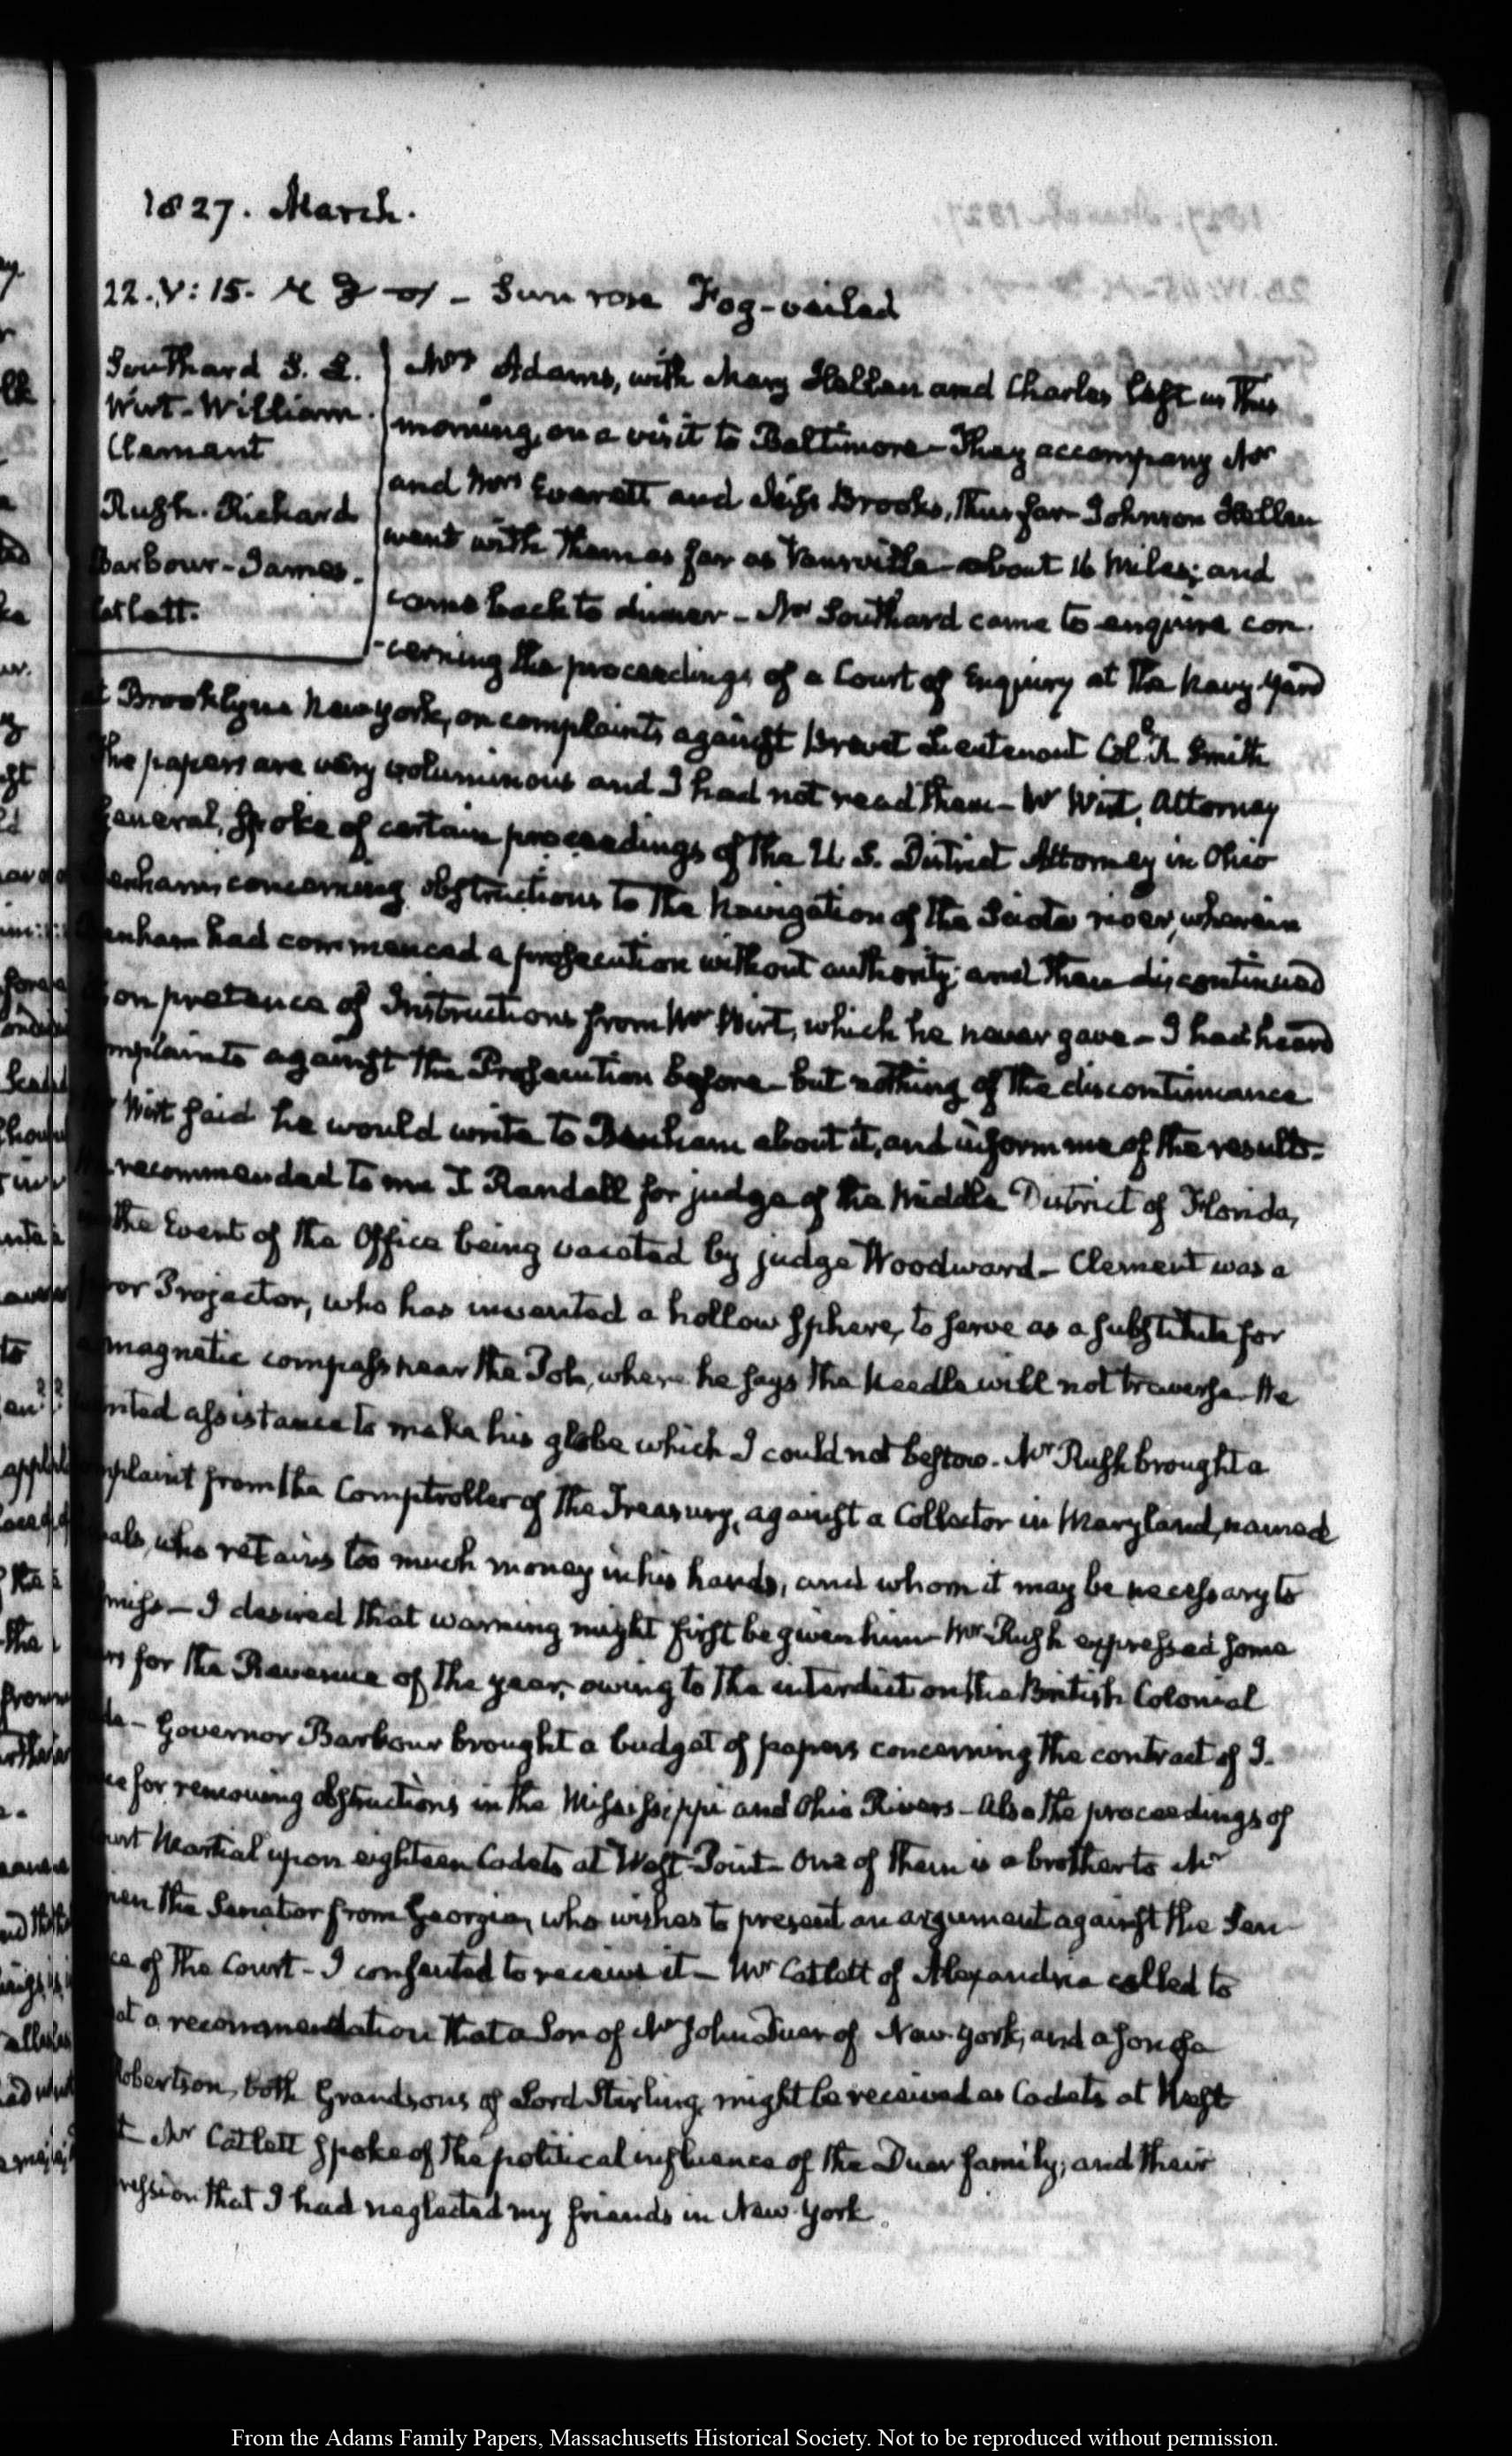 1827. March.
22. V: 15. - Sun rose Fog-vailed
Southard S. L.
Wirt-William.
Clement
Rush. Richard
Barbour-James.
Catlett.
Mrs Adams, with Mary Hellen and Charles left us this
morning, on a visit to Baltimore - They accompany Mr
and Mrs Everett and Miss Brooks, thus far - Johnson Hellen
went with them as far as Vansville - about 16 miles; and
came back to dinner - Mr Southard came to enquire con-
-cerning the proceedings of a Court of Enquiry at the Navy-Yard
at Brooklyne New York, on complaints against Brevet Lieutenant Coll. R. Smith
The papers are very voluminous and I had not read them - Mr Wirt, Attorney
General, spoke of certain proceedings of the U. S. District Attorney in Ohio
Benham, concerning obstructions to the Navigation of the Sciota river, wherein
Benham had commenced a prosecution without authority; and then discontinued
on pretence of Instructions from Mr Wirt, which he never gave - I had heard
complaints against the Prosecution before - but nothing of the discontinuance
Wirt said he would write to Benham about it, and inform me of the result.
recommended to me T Randall for judge of the Middle District of Florida,
in the Event of the Office being vacated by judge Woodward - Clement was a
poor Projector, who has invented a hollow sphere, to serve as a substitute for
a magnetic compass near the Pole, where he says the Needle will not traverse. He
wanted assistance to make his globe which I could not bestow. Mr Rush brought a
complaint from the Comptroller of the Treasury, against a Collector in Maryland, named
who retains too much money in his hands, and whom it may be necessary to
dismiss - I desired that warning might first be given him - Mr Rush expressed some
for the Revenue of the year, owing to the interdict on the British Colonial
trade - Governor Barbour brought a budget of papers concerning the contract of J.
for removing obstructions in the Mississippi and Ohio Rivers - Also the proceedings of
Court Martial upon eighteen Cadets at West-Point - One of them is a brother to Mr
the Senator from Georgia, who wishes to present an argument against the Sen-
ce of the Court - I consented to receive it - Mr Catlett of Alexandria called to
a recommendation that a Son of Mr John Duer of New-York, and a son of a
Robertson, both Grandsons of Lord Stirling, might be received as Cadets at West
Mr Catlett spoke of the political influence of the Duer family; and their
impression that I had neglected my friends in New-York.
From the Adams Family Papers, Massachusetts Historical Society. Not to be reproduced without permission.